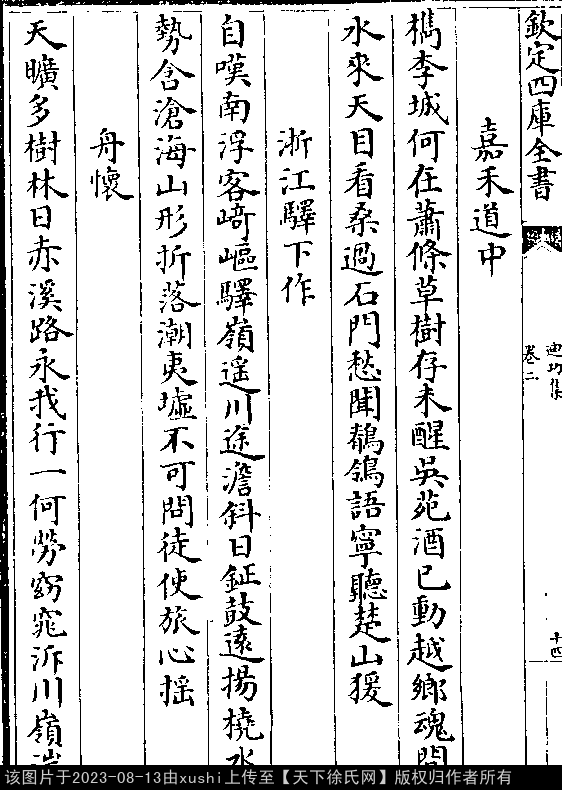 欽定四庫全書
迪功集
卷二
十四
嘉禾道中
檇李城何在蕭條草樹存未醒吳苑酒已動越鄉魂問
水來天目看桑過石門愁聞鵓鴿語寧聽楚山猨
浙江驛下作
自嘆南浮客崎嶇驛嶺遥川途澹斜日鉦鼓遠揚橈水
勢含滄海山形折落潮夷墟不可問徒使旅心揺
舟懐
天曠多樹林日赤溪路永我行一何勞窈窕泝川嶺
该图片于2023-08-13由xushi上传至【天下徐氏网】版权归作者所有